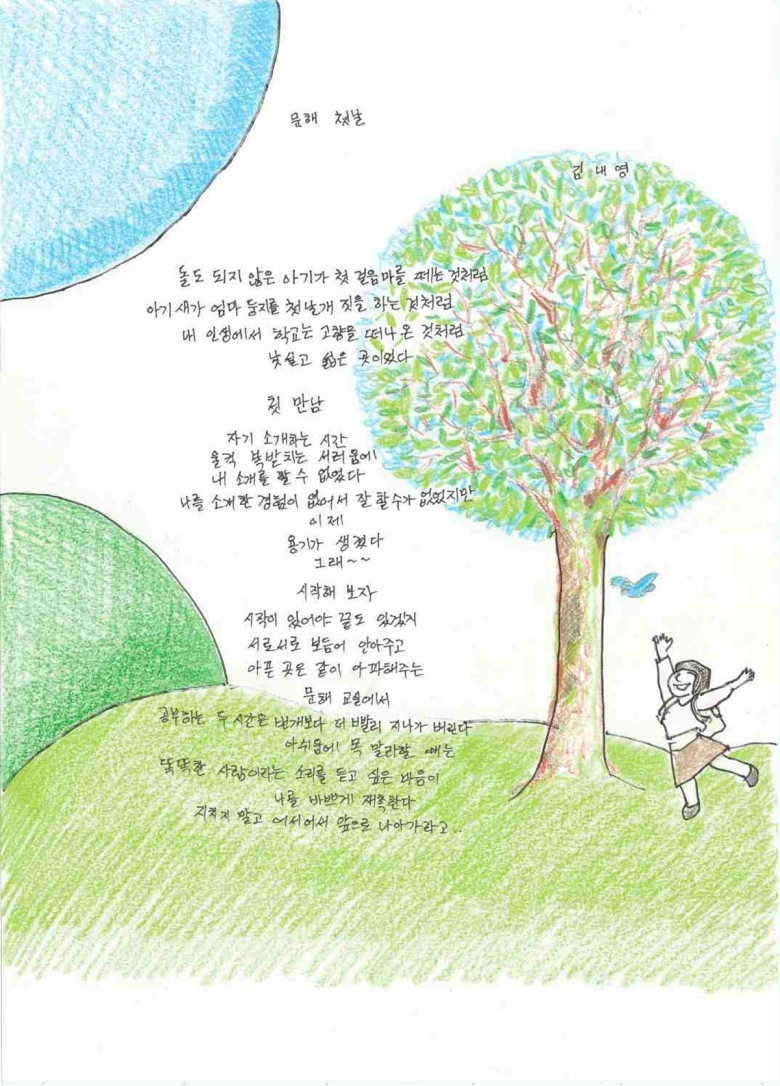 문해 첫날
김내영
돌도 되지 않은 아기가 첫 걸음마를 떼는 것처럼
아기새가 엄마 둥지를 첫 날개 짓을 하는 것처럼
내 인생에서 학교는 고향을 떠나온 것처럼
낯설고 싫은 곳이었다
첫 만남
자기 소개하는 시간
울컥 복받치는 서러움에
내 소개를 할 수 없었다
나를 소개한 경험이 없어서 잘 할수가 없었지만
이제
용기가 생겼다
그래~~
시작해 보자
시작이 있어야 끝도 있겠지
서로서로 보듬어 안아주고
아픈 곳은 같이 아파해주는
문해 교실에서
공부하는 두 시간은 번개보다 더 빨리 지나가 버린다
아쉬움에 목 말라할 때는
똑똑한 사람이라는 소리를 듣고 싶은 마음이
나를 바쁘게 재촉한다
지치지 말고 어서어서 앞으로 나아가라고..